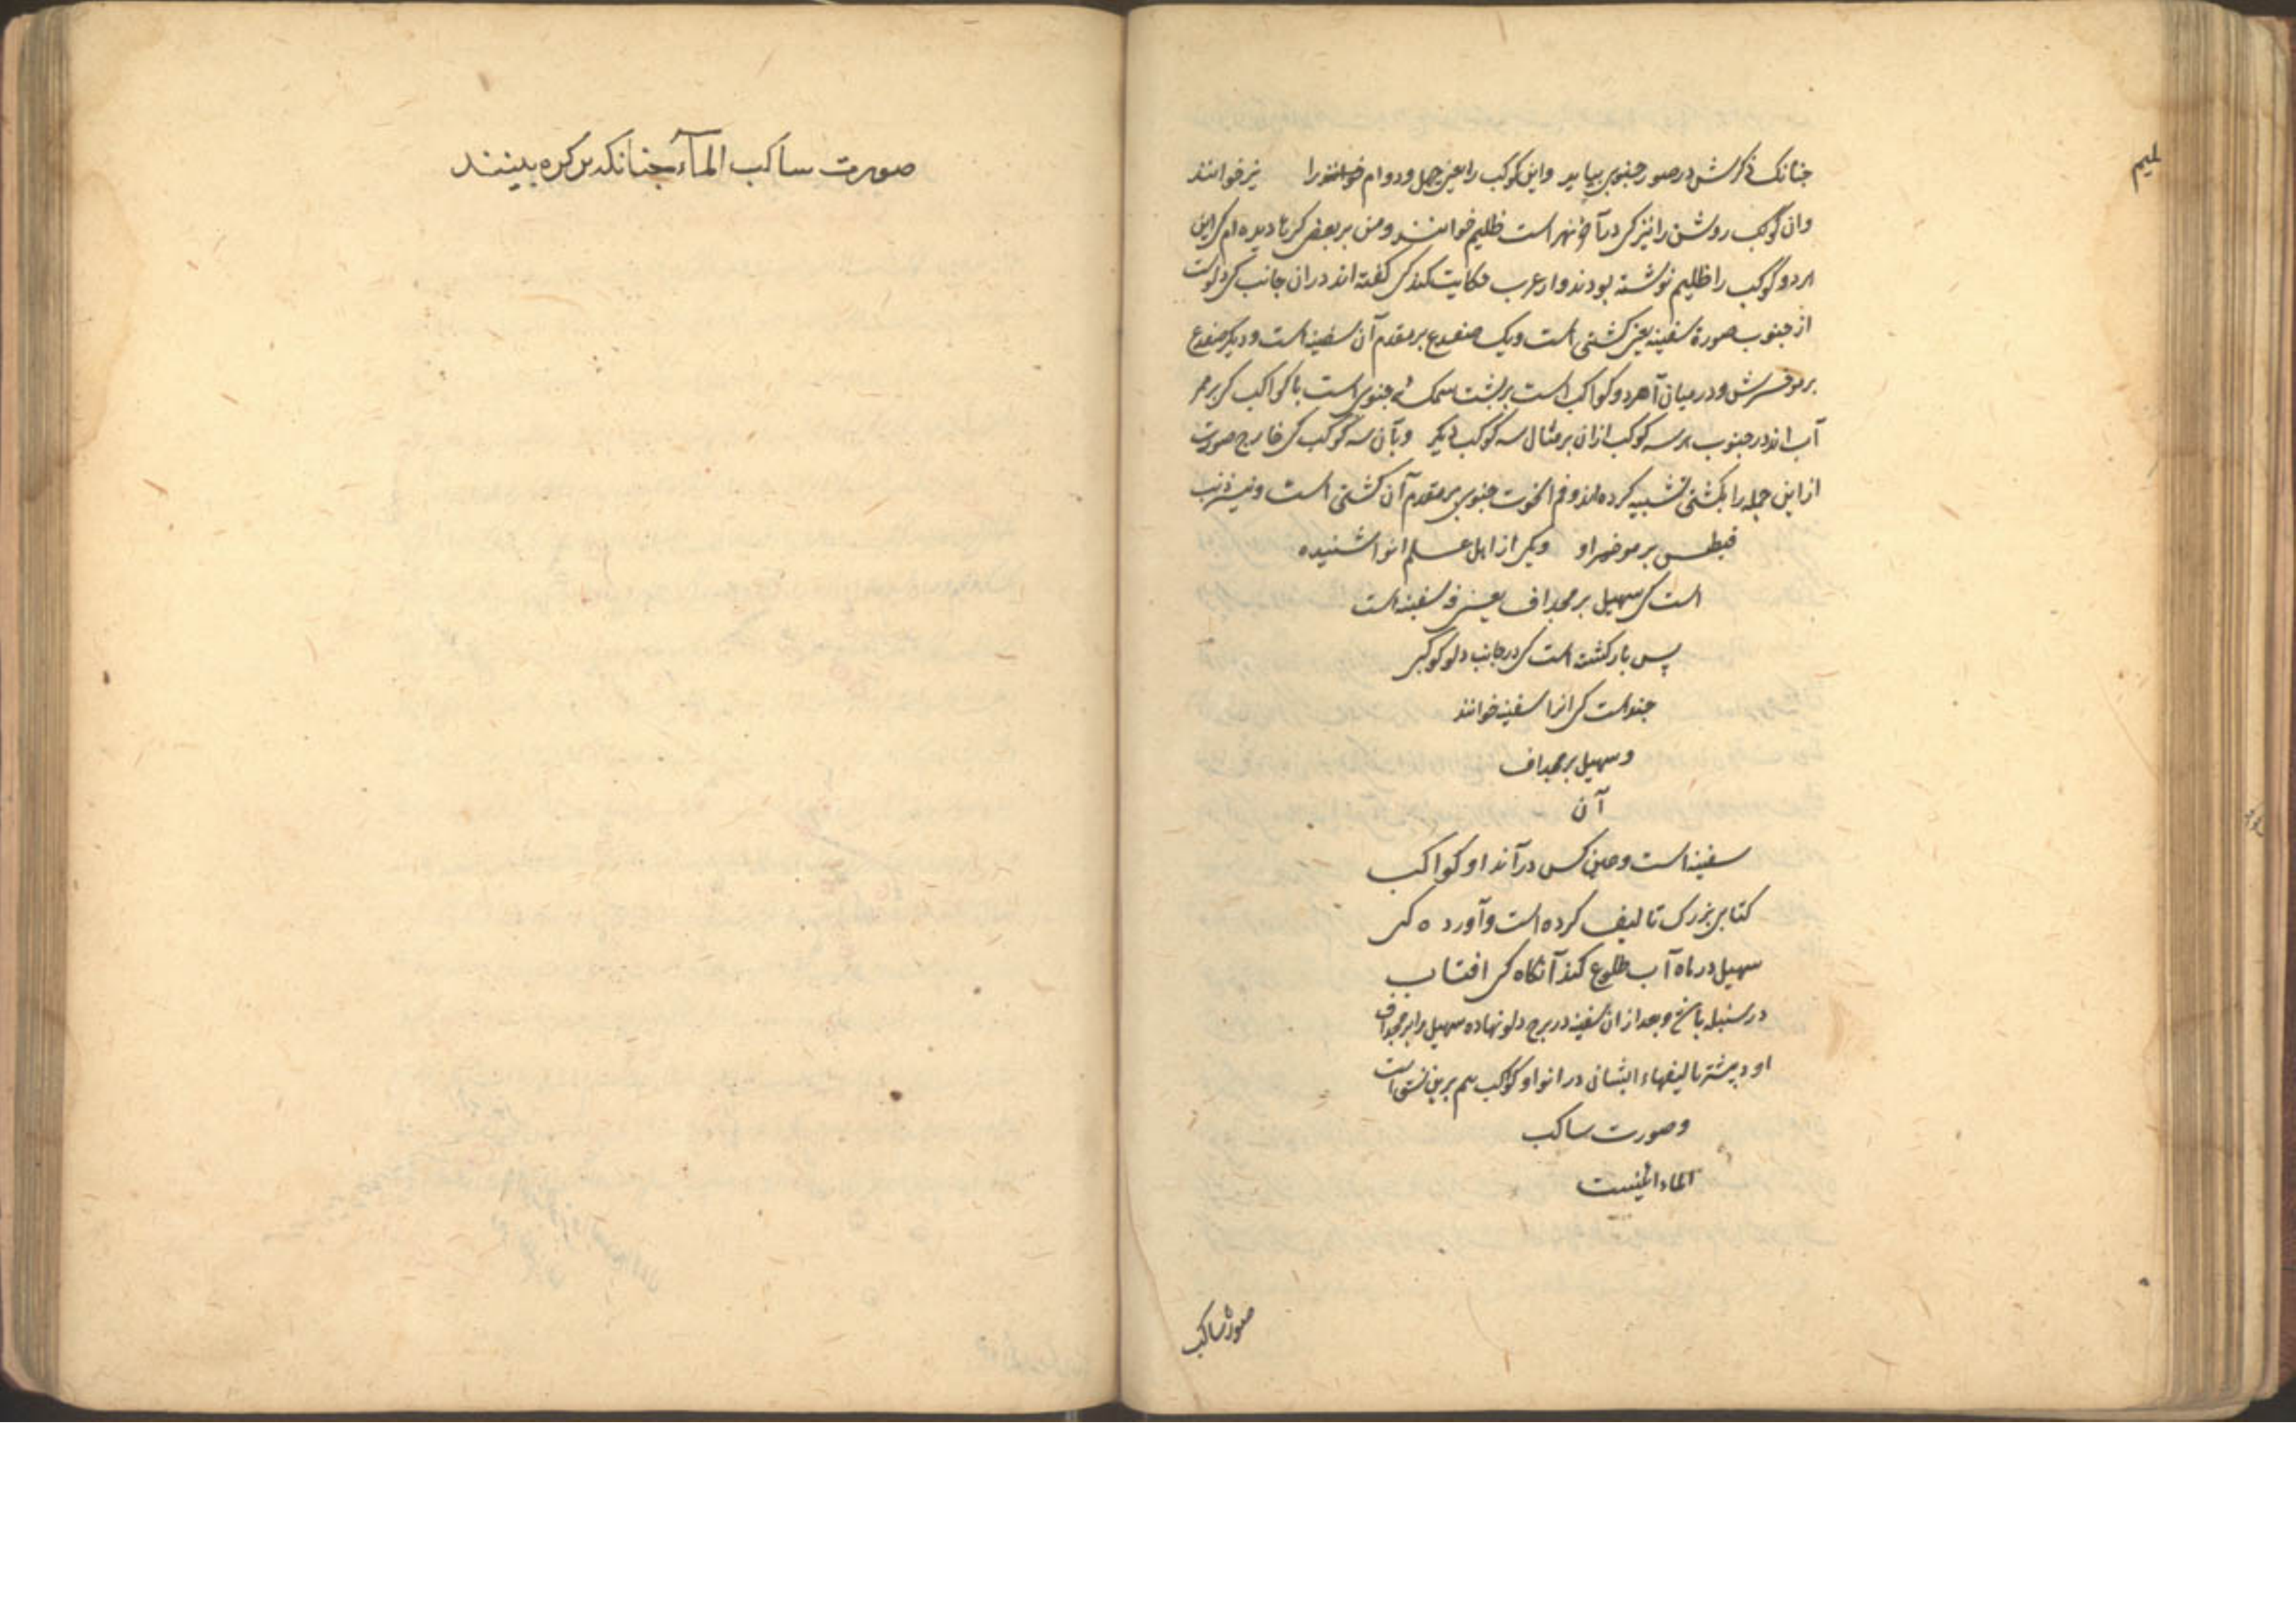 جنانک ذکرش در صور جنوبی بیاید واین کوکب را یعنی جهل ودوام خوانند را نیز خوانند
وان کوکب روشن را نیز کی در آخر نهر است ظلیم خوانند ومن بر بعضی کرها دیده ام کی این
هر دو کوکب را ظلیم نوشته بودند واز عرب حکایت کنند کی گفته اند در ان جانب کی دلوست
از جنوب صورة سفینه یعنی کشتی است ویک ضفدع بر مقدم آن سفینه است ودیکر ضفدع
بر موخرش ودر میان هر دو کواکب است بر پشت سمکه جنوبی است با کواکب کی بر ممر
آب اند در جنوب هر سه کوکب ازان بر مثال سه کوکب دیکر وبآن سه کوکب کی خارج صورت
از این جمله را بکشتی تشبیه کرده اند وفم الحوت جنوبی بر مقدم آن کشتی است ونیز ذنب
قیطس بر موخر او ویکی از اهل علم انوا شنیده
است کی سهیل بر مجداف یعنی سفینه است
پس باز کشته است کی در جانب دلو کوکبی
جند است کی انرا سفینه خوانند
وسهیل بر مجداف
آن
سفینه است وهمین کس در انواو کواکب
کتابی بزرک تالیف کرده است وآورده کی
سهیل در ماه آب طلوع کند آنکاه کی افتاب
در سنبله باشد وبعد از ان سفینه در برج دلو نهاده سهیل را بر مجداف
او وبیشتر تالیفهاء ایشان در انواو کواکب هم برین نسق است
وصورت ساکب
الماء اینست
صورت ساکب
صورت ساکب المآء جنانکه بر کره بینند